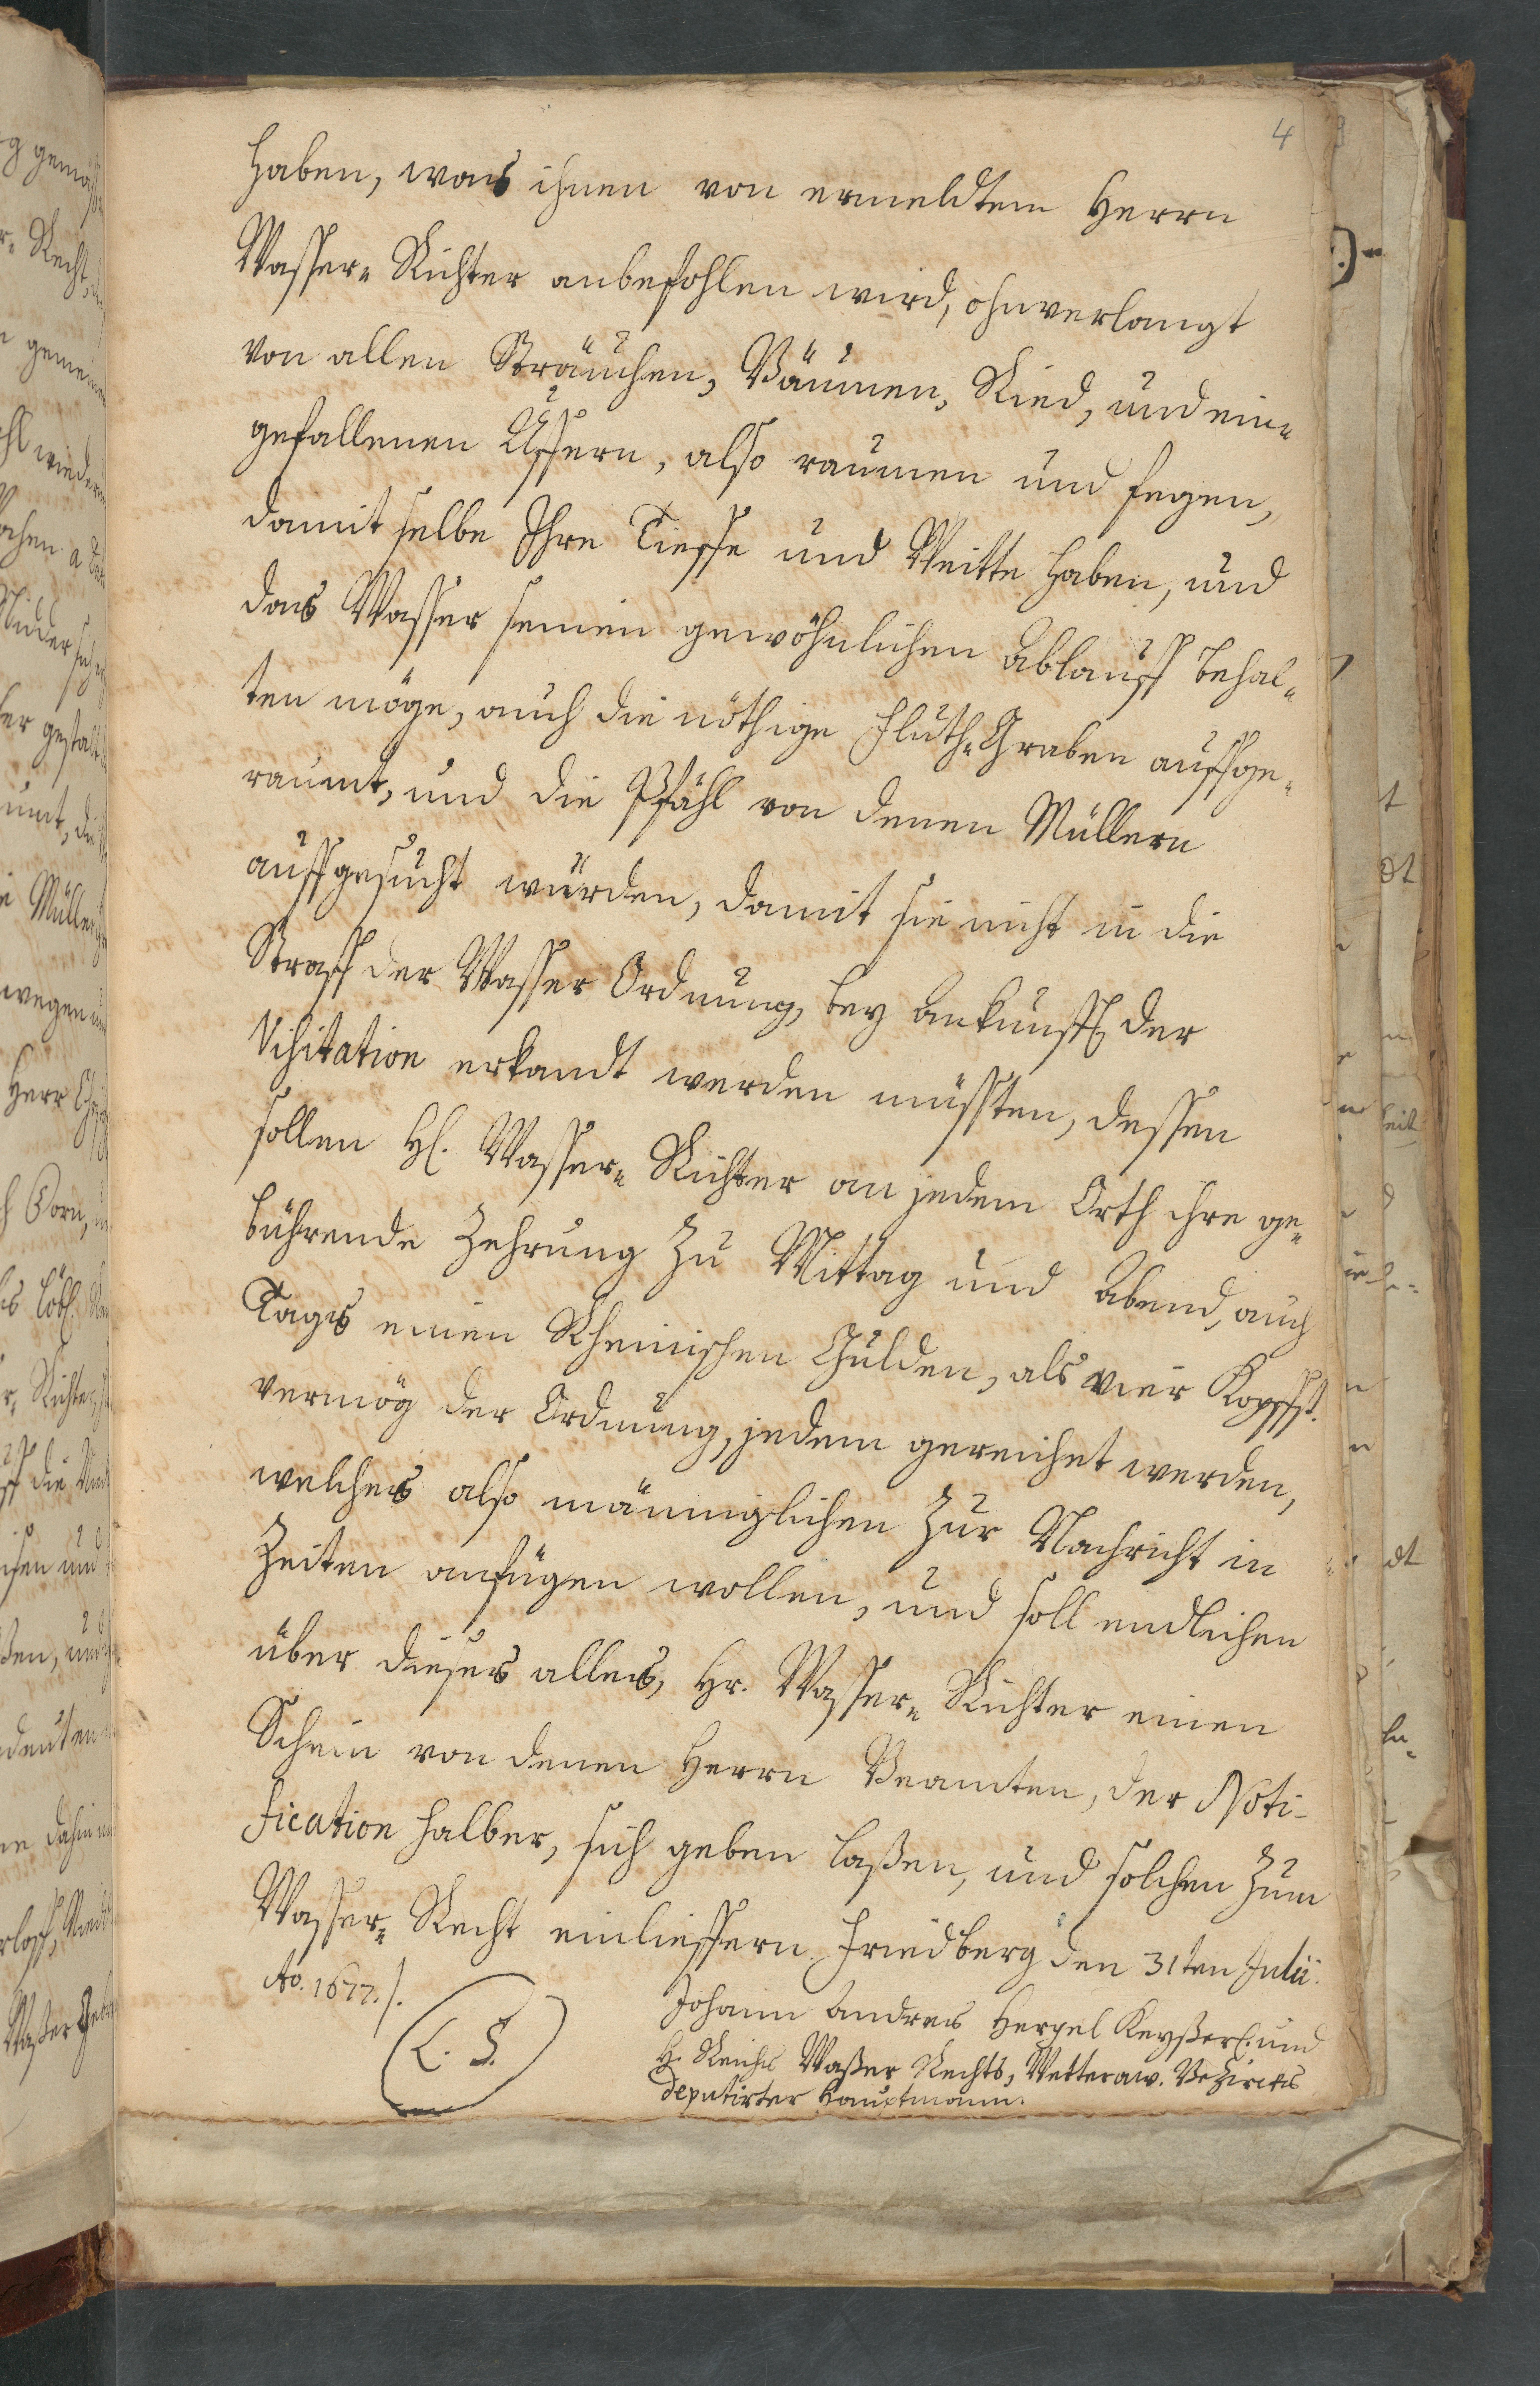 4
haben, was ihnen von ermeldtem Herrn
Wasser- Richter anbefohlen wird, ohnverlangt
von allen Sträuchen, Bäumen, Ried, und ein-
gefallenen Uffern, also raumen und fegen,
damit selbe Ihre Tieffe und Weitte haben, und
das Wasser seinen gewöhnlichen Ablauff behal-
ten möge, auch die nöthige Fluth-Graben auffge-
raumt, und die Pfähl von denen Müllern
auffgesucht würden, damit sie nicht in die
Straff der Wasser Ordnung, bey Ankunfft der
Visitation erkandt werden müssten, dessen
sollen H. Wasser- Richter an jedem Orth ihre ge-
bührende Zehrung zu Mittag und Abend, auch
Tags einen Rheinischen Gulden, als vier Kopffst.
vermög der Ordnung, jedem gereichet werden,
welches also männiglichen zur Nachricht in
Zeiten anfügen wollen, und soll endlichen
über dieses alles, Hr. Wasser- Richter einen
Schein von denen Herrn Beamten, der Noti-
fication halber, sich geben laßen, und solchen zum
Wasser- Recht einlieffern. Friedberg den 31ten Julii.
Ao. 1677./.
L. S.
Johann Andreas Hergel Keyßerl. und
H. Reichs Waßer Rechts, Wetteraw. Bezircks
deputirter Hauptmann.